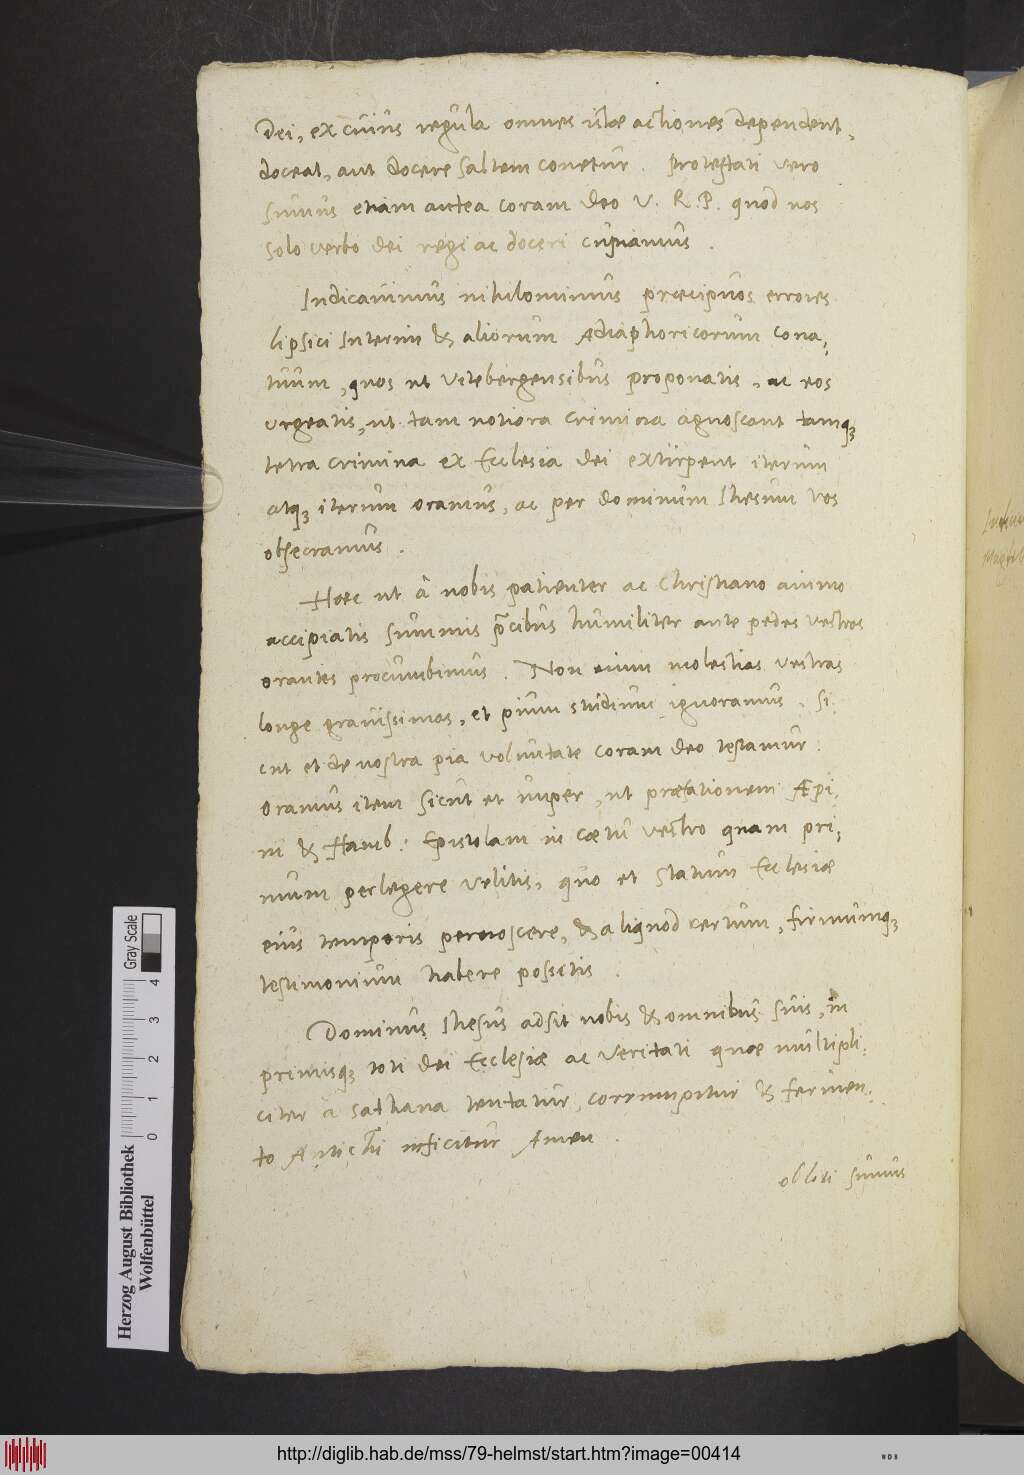 Dei, ex cuius regula omnes istae actiones dependent,
doceat, aut docere saltem conetur. Protestati vero
sumus etiam antea coram deo V. R. P. quod nos
solo verbo dei regi ac doceri cupiamus.
Indicavimus nihilominus praecipuos errores
Lipsici Interim & aliorum Adiaphoricorum cona,
tuum, quos ut Vitebergensibus proponatis, ac eos
urgeatis, ut tam notiora crimina agnoscant tamq3
tetra crimina ex Ecclesia dei extirpent iterum
atq3 iterum oramus, ac per dominum Ihesum vos
obsecramus.
Haec ut â nobis patienter ac Christiano animo
accipiatis summis p̃cibus humiliter ante pedes vestros
orantes procumbimus. Non enim molestias vestras
longe gravissimas, et pium studium ignoramus, si
cut et de nostra pia voluntate coram deo testamur:
Oramus item sicut et nuper, ut praefationem Æpi,
ni & Hamb: Epistolam in caetu vestro quam pri,
mum perlegere velitis, quo et statum Ecclesiae
eius temporis pernoscere, & aliquod certum, firmumq3
testimonium habere possitis.
Dominus Ihesus adsit nobis & omnibus suis, in
primisq3 toti dei Ecclesiae ac veritati quae multipli,
citer â sathana tentatur, corrumpitur & fermen,
to Antichri inficitur Amen.
obliti sumus
Gray Scale
0 1 2 3 4
Herzog August Bibliothek
Wolfenbüttel
http://diglib.hab.de/mss/79-helmst/start.htm?image=00414